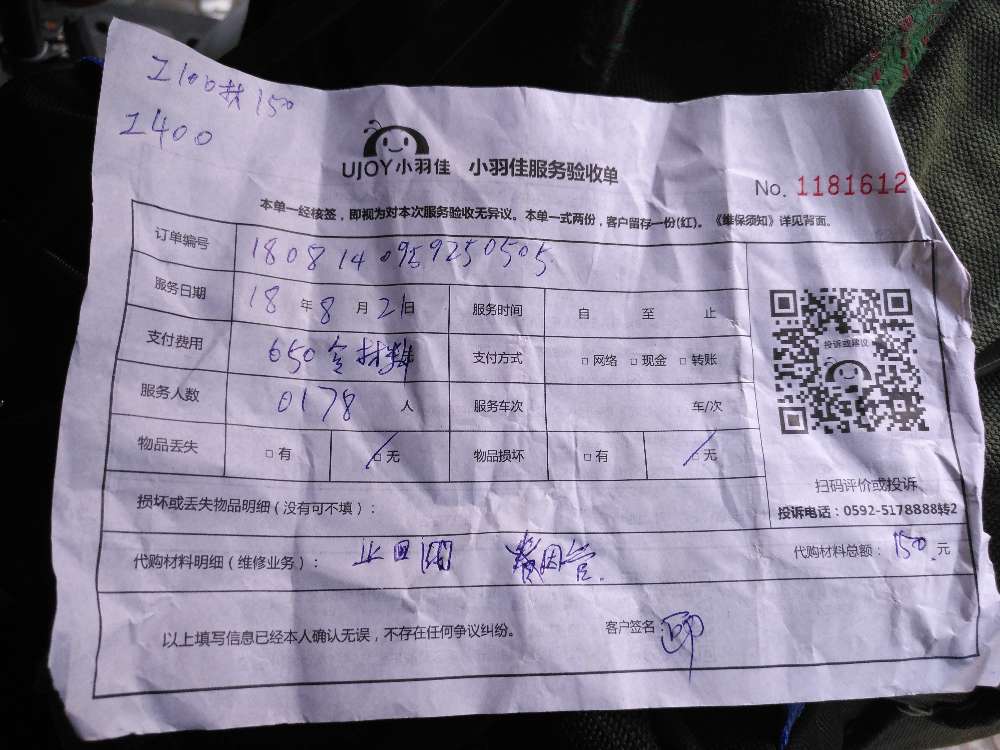 工100材150
工400
UJOY小羽佳 小羽佳服务验收单
No. 1181612
本单一经核签,即视为对本次服务验收无异议。本单一式两份,客户留存一份(红)。《维保须知》详见背面。
订单编号 1808140959250505
服务日期 18年8月21日 服务时间 自 至 止
支付费用 650含材料 支付方式 □网络 □现金 □转账
投诉或建议
服务人数 0178 人 服务车次 车/次
物品丢失 □有 □无 物品损坏 □有 □无
扫码评价或投诉
损坏或丢失物品明细(没有可不填):
投诉电话:0592-5178888转2
代购材料明细(维修业务): 止回阀 代购材料总额:150元
以上填写信息已经本人确认无误,不存在任何争议纠纷。 客户签名: